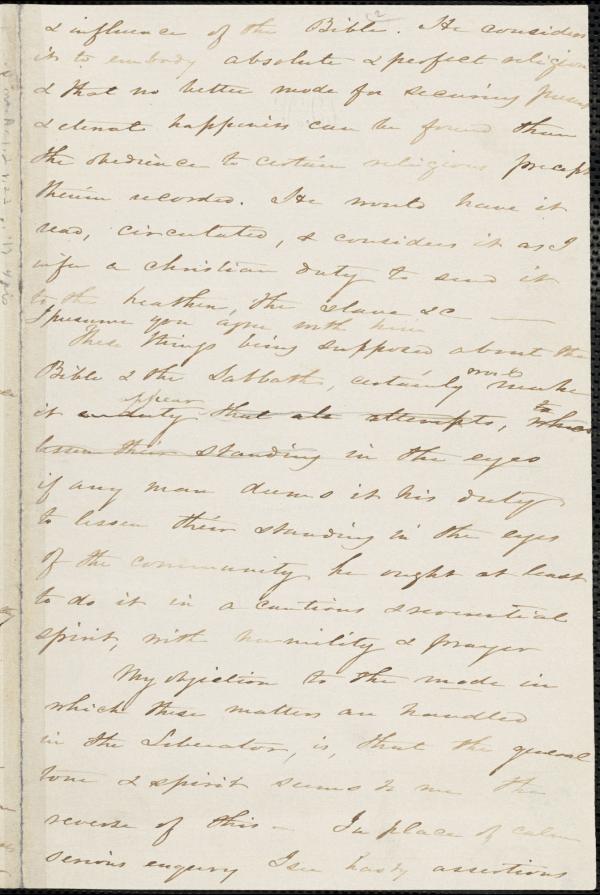 & influence of the Bible. He considers
it to embody absolute & perfect religion
& that no better mode for securing present
& eternal happiness can be found than
the obedience to certain religious precepts
therein recorded. He would have it
read, circulated, & considers it as I
infer a christian duty to send it
to the heathen, the slave &c —
I presume you agree with him
These things being supposed about the
Bible & the Sabbath, certainly would make
it appear duty that all attempts, to which
lessen their standing in the eyes
if any man deems it his duty
to lessen their standing in the eyes
of the community, he ought at least
to do it in a cautious & reverential
spirit, with humility & prayer
My objection to the mode in
which these matters are handled
in the Liberator, is, that the general
tone & spirit seems to me the
reverse of this – In place of calm
serious enquiry I see hasty assertions